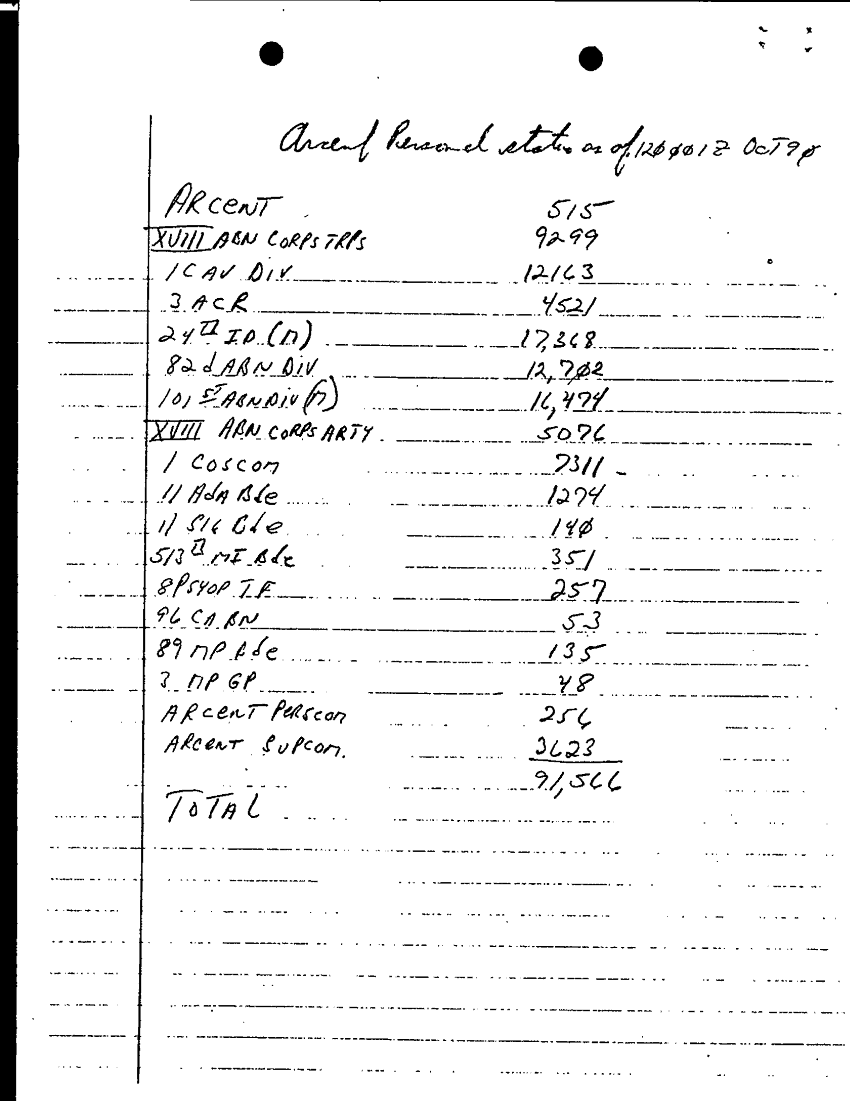 Arcent Personel status as of 120001Z OCT 90
ARCENT 515
XVIII ABN CORPS TRPS 9299
1 CAV DIV 12163
3 ACR 4521
24TH ID (M) 17,368
82d ABN DIV 12,702
101ST ABN DIV (M) 16,474
XVIII ABN CORPS ARTY 5076
1 COSCOM 7311
11 AdA Bde 1274
11 SIG Bde 140
513TH MI Bde 351
8 PSYOP TF 257
96 CA BN 53
89 MP Bde 135
3 MP GP 48
ARCENT PERSCOM 256
ARCENT SUPCOM. 3623
91,566
TOTAL